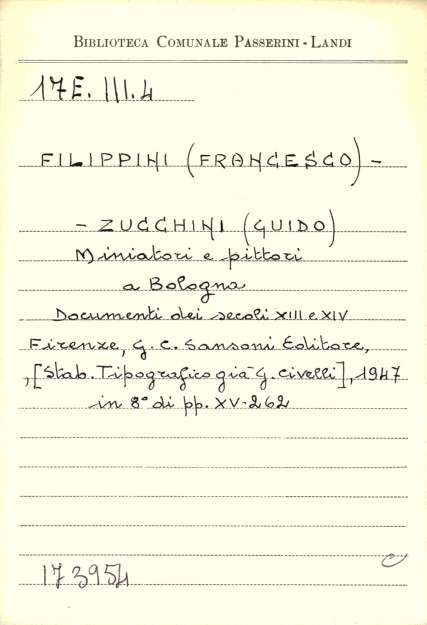 BIBLIOTECA COMUNALE PASSERINI-LANDI
17E. III.4
FILIPPINI (FRANCESCO) -
- ZUCCHINI (GUIDO)
Miniatori e pittori
a Bologna
Documenti dei secoli XIII e XIV
Firenze, G. C. Sansoni Editore,
, [Stab. Tipografico già G. Civelli], 1947
in 8° di pp. XV-262
C
173954